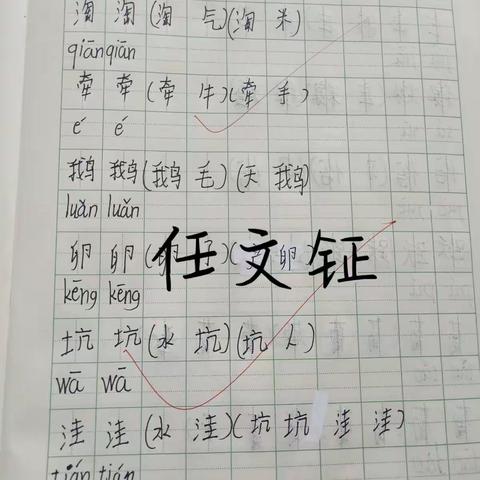 淘 淘 (淘 气)(淘 米)
qiān qiān
牵 牵 (牵 牛)(牵 手)
é é
鹅 鹅 (鹅 毛)(天 鹅)
luǎn luǎn
卵 卵 (卵 子)( 卵)
任文钲
kēng kēng
坑 坑 (水 坑)(坑 人)
wā wā
洼 洼 (水 洼)(坑 坑 洼 洼)
tián tián